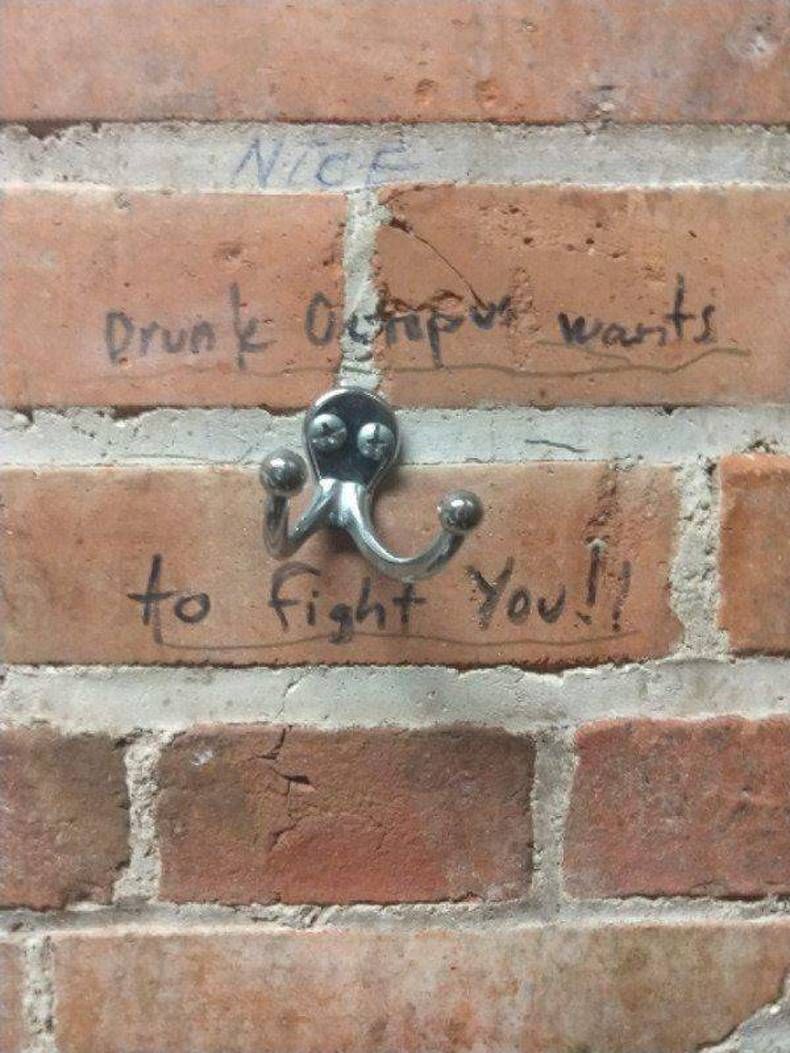 NICE
Drunk Octopus wants
to fight You!!